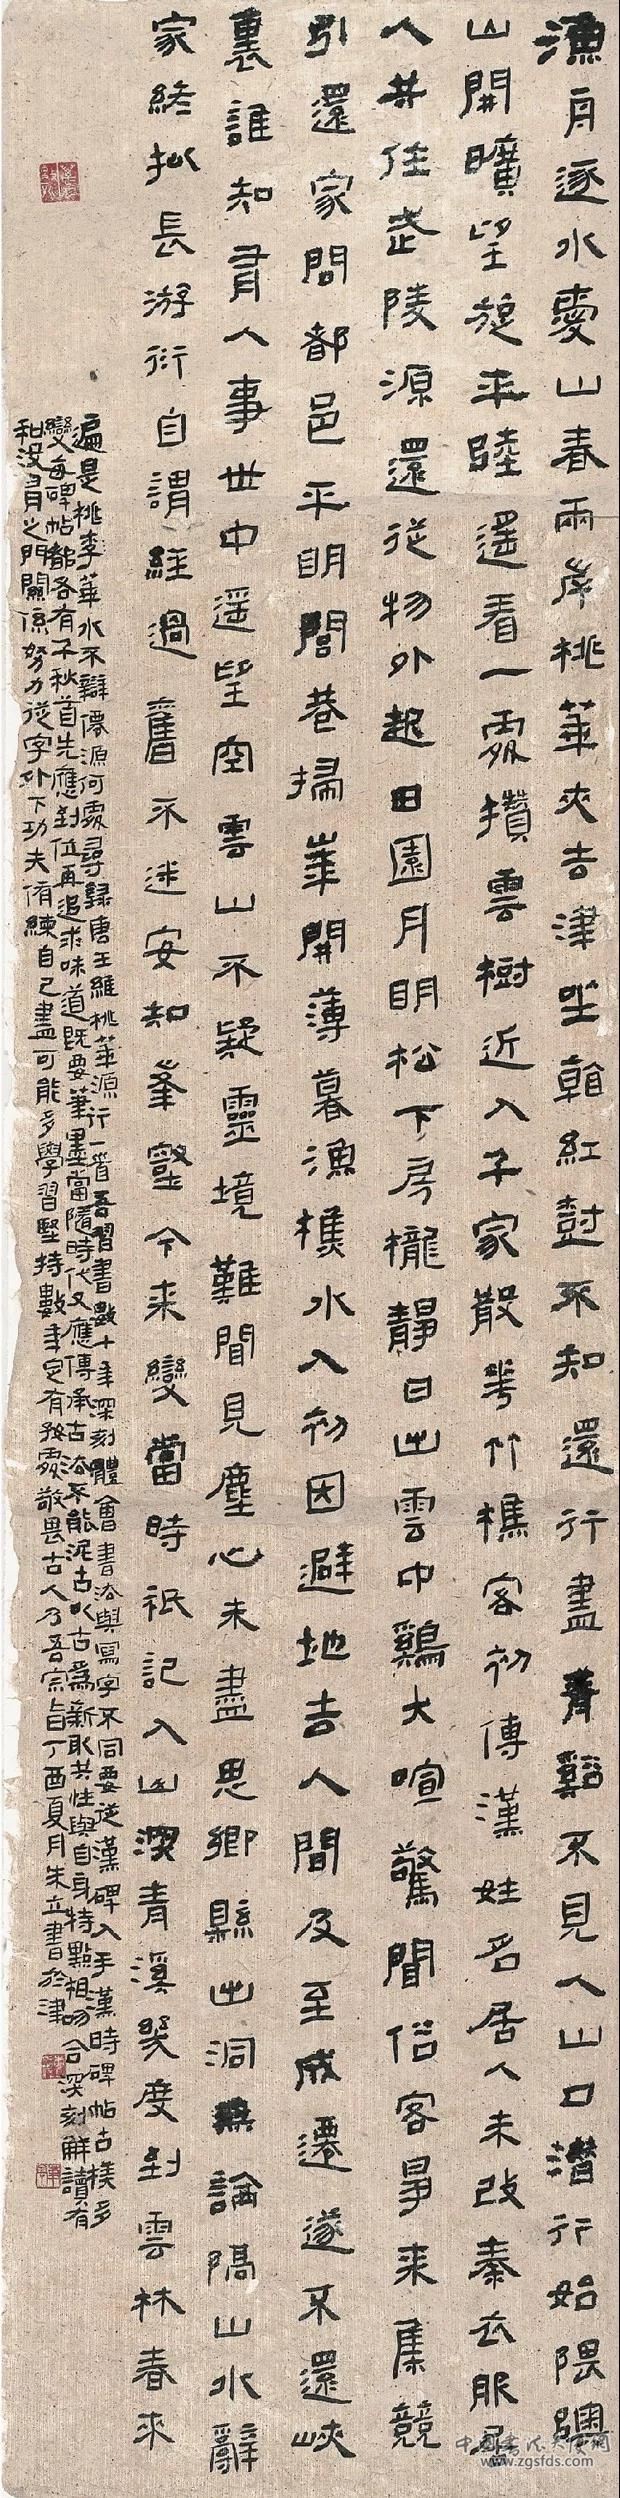 漁舟逐水愛山春兩岸桃華夾去津坐看紅尌不知還行盡青谿不見人山口潛行始隈隩
山開曠望旋平陸遥看一處攢雲樹近入千家散花竹樵客初傳漢姓名居人未改秦衣服居
人共住武陵源還從物外起田園月明松下房櫳靜日出雲中鷄犬喧驚聞俗客爭来集競
引還家問都邑平明閭巷掃華開薄暮漁樵水入初因避地去人間及至成遷遂不還峽
裏誰知有人事世中遥望空雲山不疑靈境難聞見塵心未盡思鄉縣出洞無論隔山水辭
家終拟長游衍自謂經過舊不迷安知峯壑今来變當時衹記入山深青溪幾度到雲林春来
遍是桃李華水不辯僊源何處尋録唐王維桃華源行一首吾習書數十年深刻體會書法與寫字不同要從漢碑入手漢時碑帖古樸多
變每碑帖都各有千秋首先應到位再追求味道既要筆墨當隨時代又應傳承古法不能泥古以古爲新取共性與自身特點相吻合深刻解讀有
和没有之門關係努力從字外下功夫脩練自己盡可能多學習堅持數年定有好處敬畏古人乃吾宗旨丁酉夏月朱立書於津
www.zgsfds.com